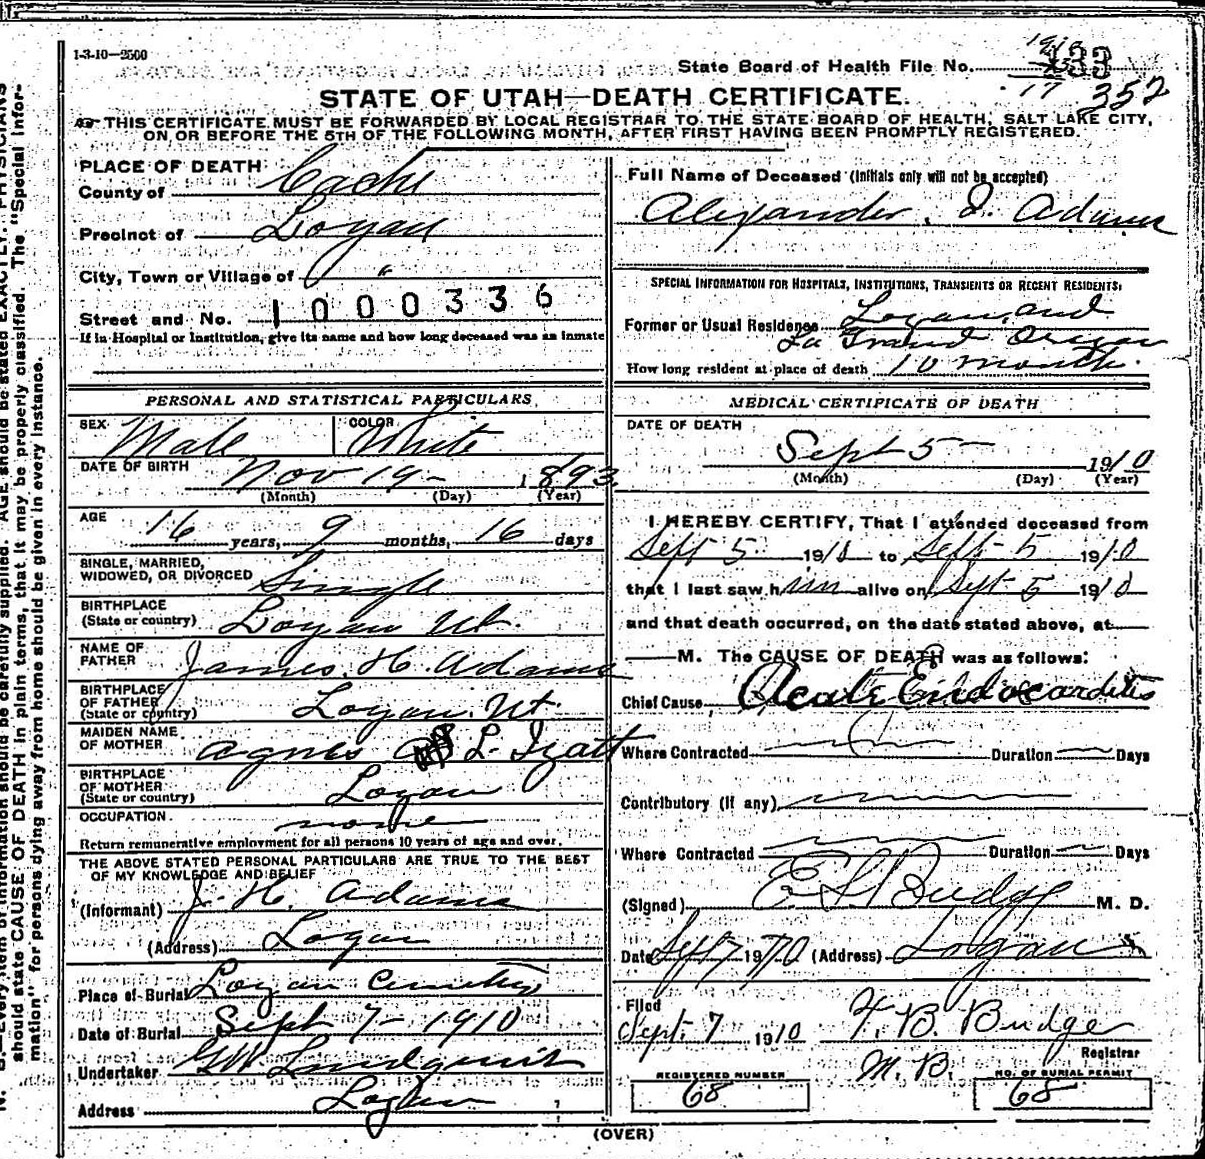 1-3-10—2500
State Board of Health File No.
1910
133
17
352
STATE OF UTAH—DEATH CERTIFICATE.
THIS CERTIFICATE MUST BE FORWARDED BY LOCAL REGISTRAR TO THE STATE BOARD OF HEALTH, SALT LAKE CITY,
ON OR BEFORE THE 5TH OF THE FOLLOWING MONTH, AFTER FIRST HAVING BEEN PROMPTLY REGISTERED.
PLACE OF DEATH
County of Cache
Precinct of Logan
City, Town or Village of "
Street and No. 1000336
If in Hospital or Institution, give its name and how long deceased was an inmate
PERSONAL AND STATISTICAL PARTICULARS
SEX Male COLOR White
DATE OF BIRTH Nov 19 - 1893
(Month) (Day) (Year)
AGE 16 years, 9 months, 16 days
SINGLE, MARRIED,
WIDOWED, OR DIVORCED Single
BIRTHPLACE
(State or country) Logan Ut.
NAME OF
FATHER James. H. Adams
BIRTHPLACE
OF FATHER
(State or country) Logan. Ut.
MAIDEN NAME
OF MOTHER Agnes L. Izatt
BIRTHPLACE
OF MOTHER
(State or country) Logan
OCCUPATION none
Return remunerative employment for all persons 10 years of age and over.
THE ABOVE STATED PERSONAL PARTICULARS ARE TRUE TO THE BEST
OF MY KNOWLEDGE AND BELIEF
(Informant) J. H. Adams
(Address) Logan
Place of Burial Logan Cemetery
Date of Burial Sept 7 - 1910
Undertaker GW. Lindquist
Address Logan
Full Name of Deceased (Initials only will not be accepted)
Alexander. I. Adams
SPECIAL INFORMATION FOR HOSPITALS, INSTITUTIONS, TRANSIENTS OR RECENT RESIDENTS:
Former or Usual Residence Logan, and
La Grand Oregon
How long resident at place of death 10 months.
MEDICAL CERTIFICATE OF DEATH
DATE OF DEATH
Sept 5 — 1910
(Month) (Day) (Year)
I HEREBY CERTIFY, That I attended deceased from
Sept 5 1910 to Sept 5 1910
that I last saw him alive on Sept 5 1910
and that death occurred, on the date stated above, at
M. The CAUSE OF DEATH was as follows:
Chief Cause Acute Endocarditis
Where Contracted Duration Days
Contributory (If any)
Where Contracted Duration Days
(Signed) E S Budge M. D.
Date Sept 7 1910 (Address) Logan
Filed
Sept. 7 1910 F. B. Budge
Registrar
M. B.
REGISTERED NUMBER
68
NO. OF BURIAL PERMIT
68
(OVER)
N. B.—Every item of information should be carefully supplied. AGE should be stated EXACTLY. PHYSICIANS
should state CAUSE OF DEATH in plain terms, that it may be properly classified. The "Special Infor-
mation" for persons dying away from home should be given in every instance.